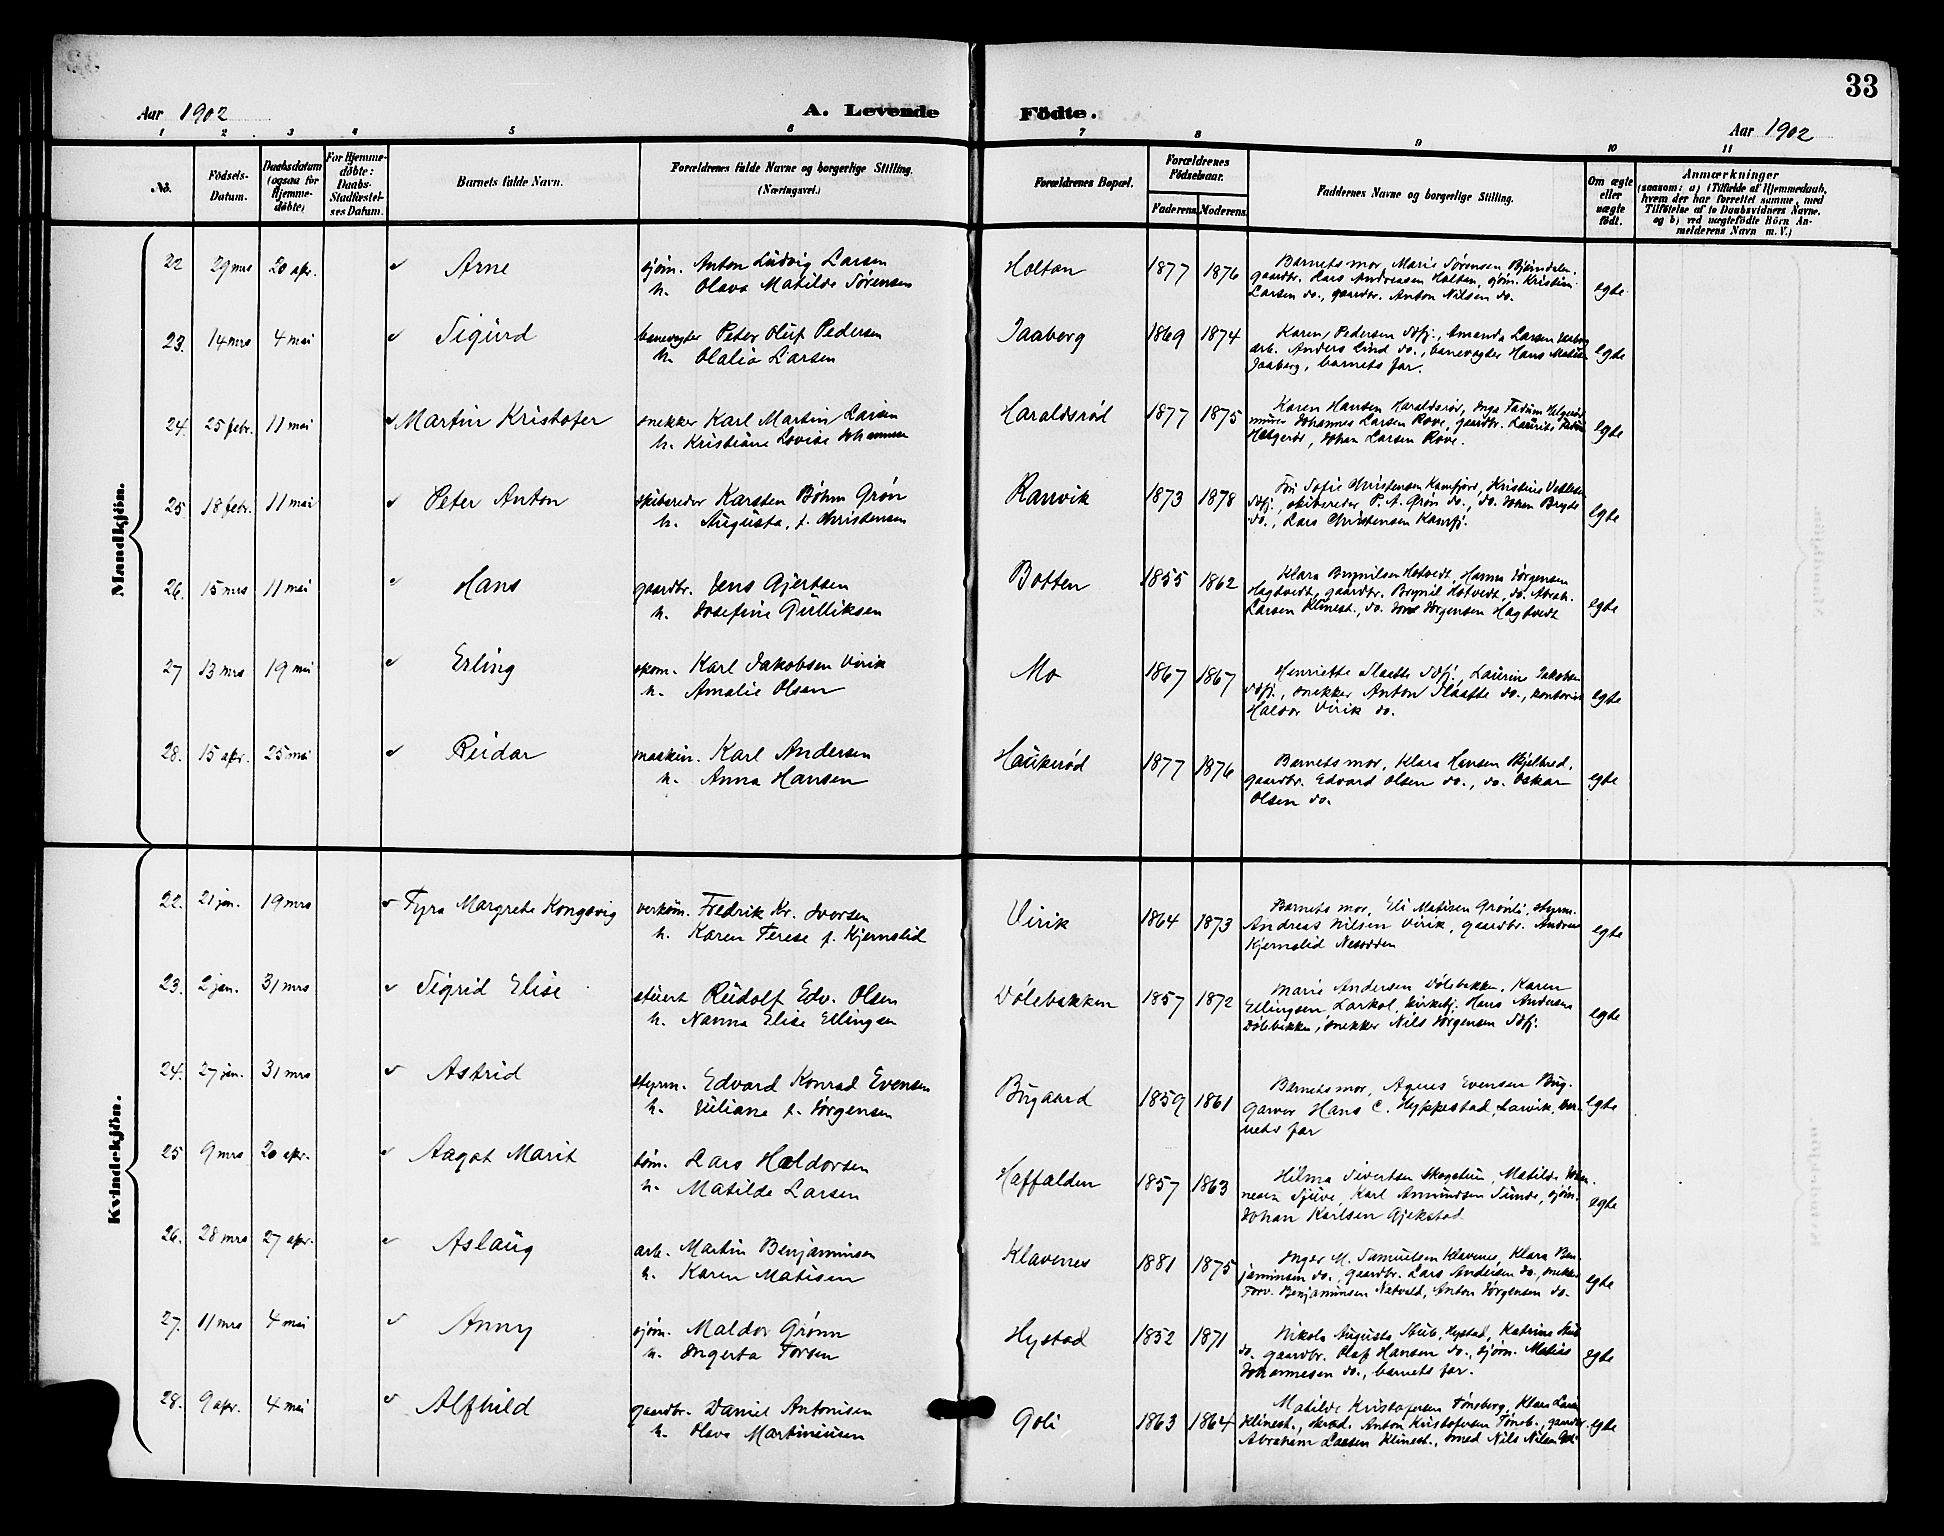 33
Aar 1902
A. Levende Födte.
Aar 1902
1 2 3 4 5 6 7 8 9 10 11
No.
Födsels-Datum.
Daabsdatum (ogsaa for Hjemme-döbte)
For Hjemme-döbte: Daabs-Stadfæstel-ses Datum.
Barnets fulde Navn.
Forældrenes fulde Navne og borgerlige Stilling.
(Næringsvei.)
Forældrenes Bopæl.
Forældrenes Födselsaar.
Faderens. Moderens.
Faddernes Navne og borgerlige Stilling.
Om ægte eller uægte födt.
Anmærkninger
(saasom: a) i Tilfælde af Hjemmedaab,
hvem der har forrettet samme, med
Tilföielse af to Daabsvidners Navne.
og b) ved uægtefödte Börn An-
melderens Navn m. V.)
Mandkjön.
22 29 mrs 20 apr. Arne sjøm. Anton Ludvig Larsen Holtan 1877 1876 Barnets mor, Marie Sørensen Bjørndalen.
h. Olava Matilde Sørensen gaardbr. Lars Andreasen Holtan, sjøm. Kristian
Larsen do., gaardbr. Anton Nilsen do. egte
23. 14 mrs 4 mai Sigurd banevogter Peter Oluf Pedersen Jaaberg 1869 1874 Karen Pedersen Sdfj., Amanda Larsen
h. Olalia Larsen arb. Anders Lind do., banevogter Hans
Jaaberg, barnets far. egte
24. 25 febr. 11 mai Martin Kristofer snekker Karl Martin Larsen Haraldsrød 1877 1875 Karen Hansen Haraldsrød, Inga Fadum Helgerød
h. Kristiane Lovise Johannesen murer Johannes Larsen Rove, gaardbr. Laurits Fadum
Helgerød, Johan Larsen Rove. egte
25 18 febr. 11 mai Peter Anton skibsreder Karsten Bøhm Grøn Ranvik 1873 1878 Sofie Christensen Kamfjord, Kristine
h. Augusta, f. Christensen Sdfj., skibsreder P. A. Grøn do., do. Johan Bryde
do., Lars Christensen Kamfj. egte
26. 15 mrs 11 mai Hans gaardbr. Jens Gjertsen Botten 1855 1862 Klara Brynilsen Hotvedt, Hanna Jørgensen
h. Josefine Gulliksen Hagtvedt, gaardbr. Brynil Hotvedt, do. Abrah.
Larsen Klinest., do. Jens Jørgensen Hagtvedt egte
27 13 mrs 19 mai Erling skom. Karl Jakobsen Virik Mo 1867 1867 Henriette Slaatte Sdfj., Laurin Jakobsen
h. Amalie Olsen Sdfj., snekker Anton Slaatte do., kontorist
Haldor Virik do. egte
28. 15 apr. 25 mai Reidar maskin. Karl Andersen Haukerød 1877 1876 Barnets mor, Klara Hansen Skjelbred,
h. Anna Hansen gaardbr. Edvard Olsen do., do. Oskar
Olsen do. egte
Kvindekjön.
22. 21 jan. 19 mrs Fyra Margrete Kongsvig verksm. Fredrik Kr. Iversen Virik 1864 1873 Barnets mor, Eli Matisen Grønli, styrm.
h. Karen Terese f. Kjernslid Andreas Nilsen Virik, gaardbr. Andreas
Kjernslid Nesodden egte
23. 2 jan. 31 mrs Sigrid Elise stuert Rudolf Edv. Olsen Dølebakken 1857 1872 Marie Andersen Dølebakken, Karen
h. Nanna Elise Ellingsen Ellingsen Larkol, kirketj. Hans Andersen
Dølebakken, snekker Nils Jørgensen Sdfj. egte
24. 27 jan. 31 mrs Astrid styrm. Edvard Konrad Evensen Bugaard 1859 1861 Barnets mor, Agnes Evensen Bug.
h. Juliane f. Jørgensen Garver Hans C. Hyppestad, Larvik, bar-
nets far egte
25 9 mrs 20 apr. Aagot Marit tøm. Lars Haldorsen Haffalden 1857 1863 Hilma Sivertsen Skogstuen, Matilde
h. Matilde Larsen Sjuve, Karl Amundsen Sunde, sjøm.
Johan Karlsen Gjekstad egte
26. 28 mrs 27 apr. Aslaug arb. Martin Benjaminsen Klavenes 1881 1875 Inger M. Samuelsen Klavenes, Klara Ben-
h. Karen Matisen jaminsen do., gaardbr. Lars Andersen do., snekker
Torv. Benjaminsen Natvald, Anton Jørgensen do. egte
27. 11 mrs 4 mai Anny sjøm. Haldor Grønn Hystad 1852 1871 Nikola Augusta Stub, Hystad, Katrine Stub
h. Ingerta Torsen do. gaardbr. Olaf Hansen do., sjøm. Matias
Johannesen do., barnets far. egte
28. 9 apr. 4 mai Alfhild gaardbr. Daniel Antonisen Goli 1863 1864 Matilde Kristofersen Tønsberg, Klara Larsen
h. Olava Martinusen Klinest., skræd. Anton Kristofersen Tønsb., gaardbr.
Abraham Larsen Klinest., smed Nils Nilsen Goli egte